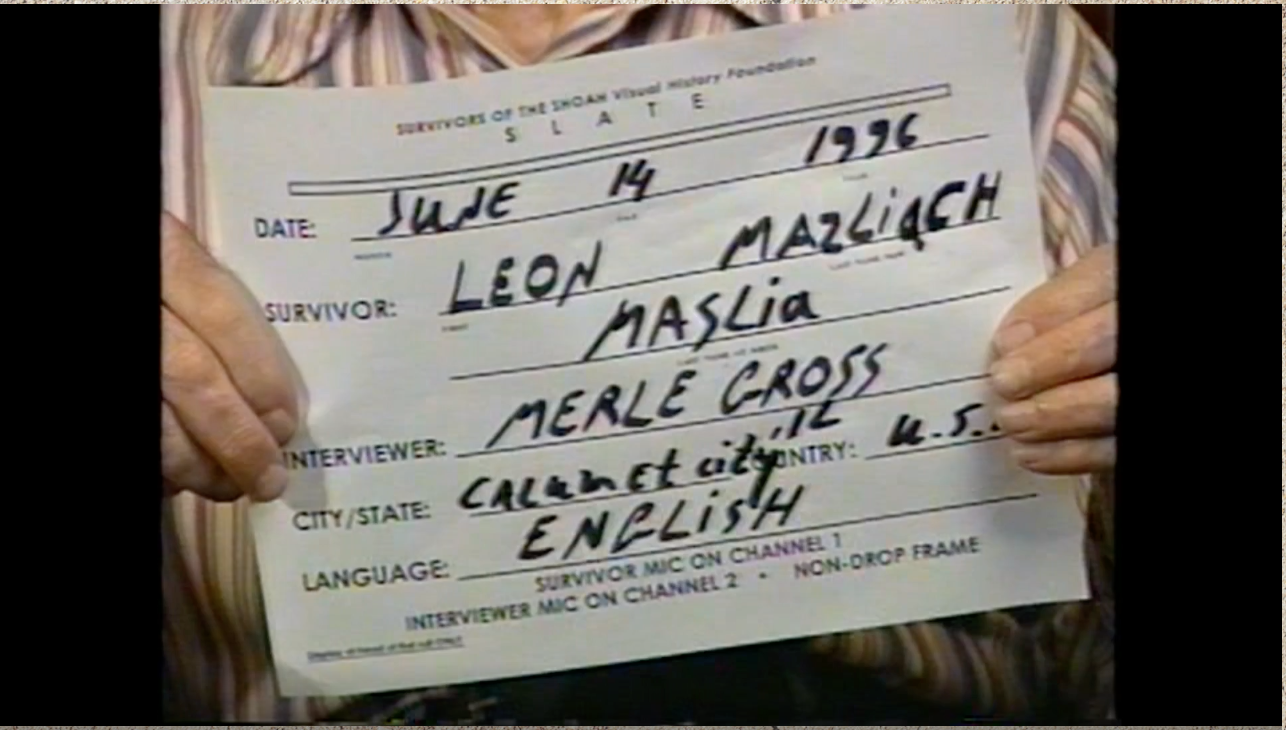 SURVIVORS OF THE SHOAH Visual History Foundation
SLATE
DATE: JUNE 14 1996
MONTH DAY YEAR
SURVIVOR: LEON MAZLiaCH
FIRST LAST NAME NOW
MASLia
LAST NAME AT BIRTH
INTERVIEWER: MERLE GROSS
CITY/STATE: CALumEt city, IL COUNTRY: U.S.
LANGUAGE: ENGLiSH
SURVIVOR MIC ON CHANNEL 1
INTERVIEWER MIC ON CHANNEL 2 • NON-DROP FRAME